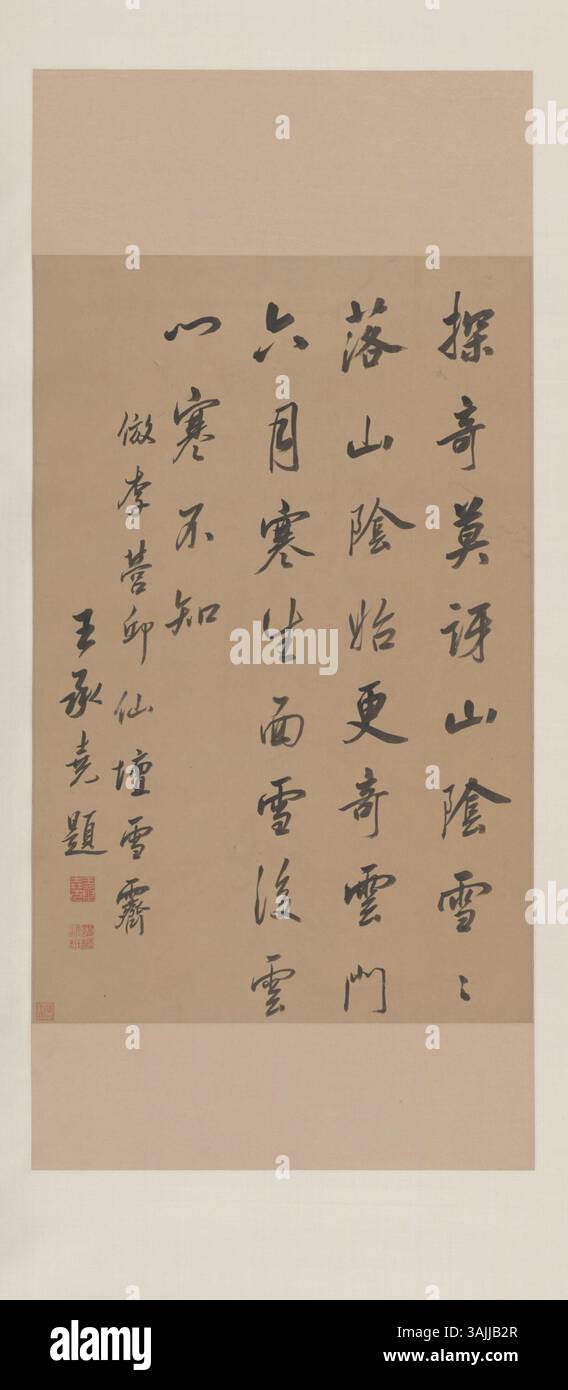 探奇莫訝山陰雪〻
落山陰始更奇雲門
六月寒生面雪後雲
門寒不知
倣李營邱仙壇雪霽
王承堯題
alamy
alamy
Image ID: 3AJJB2R
www.alamy.com